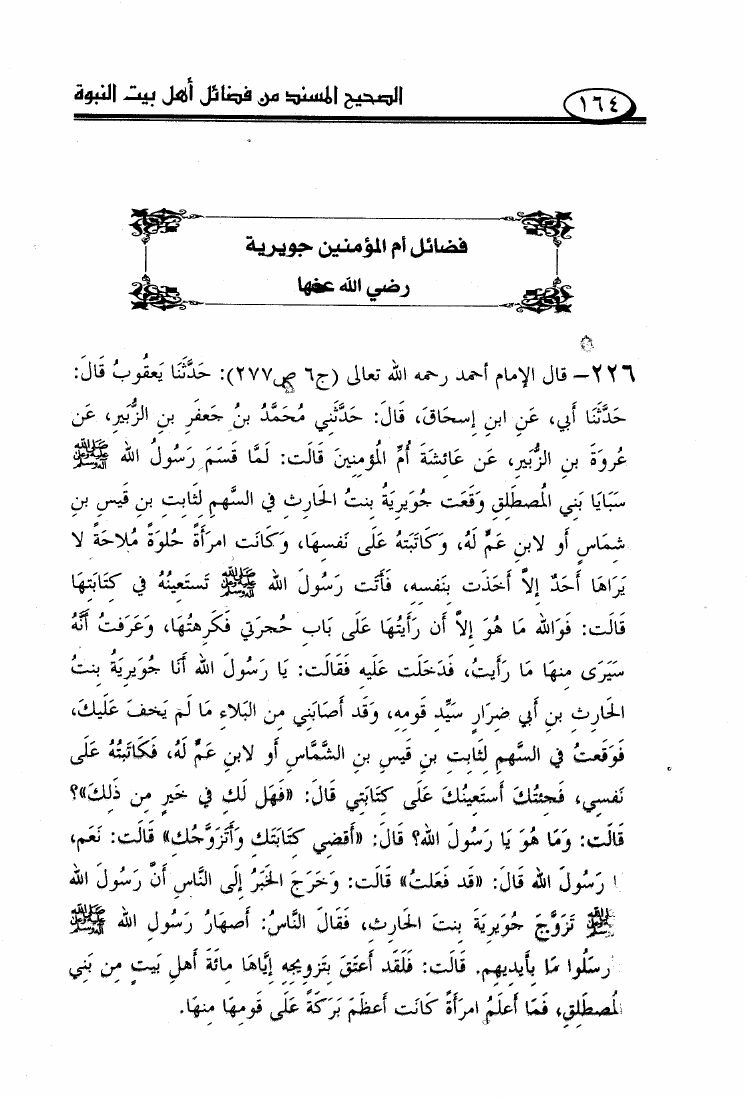 ١٦٤ الصحيح المسند من فضائل أهل بيت النبوة
فضائل أم المؤمنين جويرية
رضي الله عنها
٢٢٦– قال الإمام أحمد رحمه الله تعالى (ج٦ ص٢٧٧): حَدَّثَنَا يَعقُوبُ قَالَ:
حَدَّثَنَا أَبي، عَنِ ابنِ إسحَاقَ، قَالَ: حَدَّثَنِي مُحَمَّدُ بنُ جَعفَرِ بنِ الزُّبَيرِ، عَن
عُروَةَ بنِ الزُّبَيرِ، عَن عَائِشَةَ أُمِّ المُؤمِنِينَ قَالَت: لَمَّا قَسَمَ رَسُولُ الله ﷺ
سَبَايَا بَنِي المُصطَلِقِ وَقَعَت جُوَيرِيَةُ بنتُ الحَارِثِ في السَّهمِ لثَابِتِ بنِ قَيسِ بنِ
شمَاسٍ أَو لابنِ عَمٍّ لَهُ، وَكَاتَبَتهُ عَلَى نَفسِهَا، وَكَانَت امرَأَةً حُلوَةً مُلاحَةً لا
يَرَاهَا أَحَدٌ إلاَّ أَخَذَت بنَفسِهِ، فَأَتَت رَسُولَ الله ﷺ تَستَعِينُهُ في كِتَابَتِهَا
قَالَت: فَوَالله مَا هُوَ إلاَّ أَن رَأَيتُهَا عَلَى بَابِ حُجرَتي فَكَرِهتُهَا، وَعَرَفتُ أَنَّهُ
سَيَرَى مِنهَا مَا رَأَيتُ، فَدَخَلَت عَلَيهِ فَقَالَت: يَا رَسُولَ الله أَنَا جُوَيرِيَةُ بنتُ
الحَارِثِ بنِ أَبي ضِرَارٍ سَيِّدِ قَومِهِ، وَقَد أَصَابَنِي مِن البَلاءِ مَا لَم يَخفَ عَلَيكَ،
فَوَقَعتُ في السَّهمِ لثَابِتِ بنِ قَيسِ بنِ الشَّمَّاسِ أَو لابنِ عَمٍّ لَهُ، فَكَاتَبتُهُ عَلَى
نَفسِي، فَجِئتُكَ أَستَعِينُكَ عَلَى كِتَابَتي قَالَ: «فَهَل لَكِ في خَيرٍ مِن ذَلِكَ»؟
قَالَت: وَمَا هُوَ يَا رَسُولَ الله؟ قَالَ: «أَقضِي كِتَابَتَكِ وَأَتَزَوَّجُكِ» قَالَت: نَعَم،
رَسُولَ الله قَالَ: «قَد فَعَلتُ» قَالَت: وَخَرَجَ الخَبَرُ إلَى النَّاسِ أَنَّ رَسُولَ الله
ﷺ تَزَوَّجَ جُوَيرِيَةَ بنتَ الحَارِثِ، فَقَالَ النَّاسُ: أَصهَارُ رَسُولِ الله ﷺ
رسَلُوا مَا بأَيدِيهِم. قَالَت: فَلَقَد أَعتَقَ بتَزوِيجِهِ إيَّاهَا مِائَةَ أَهلِ بَيتٍ مِن بَنِي
لمُصطَلِقِ، فَمَا أَعلَمُ امرَأَةً كَانَت أَعظَمَ بَرَكَةً عَلَى قَومِهَا مِنهَا.